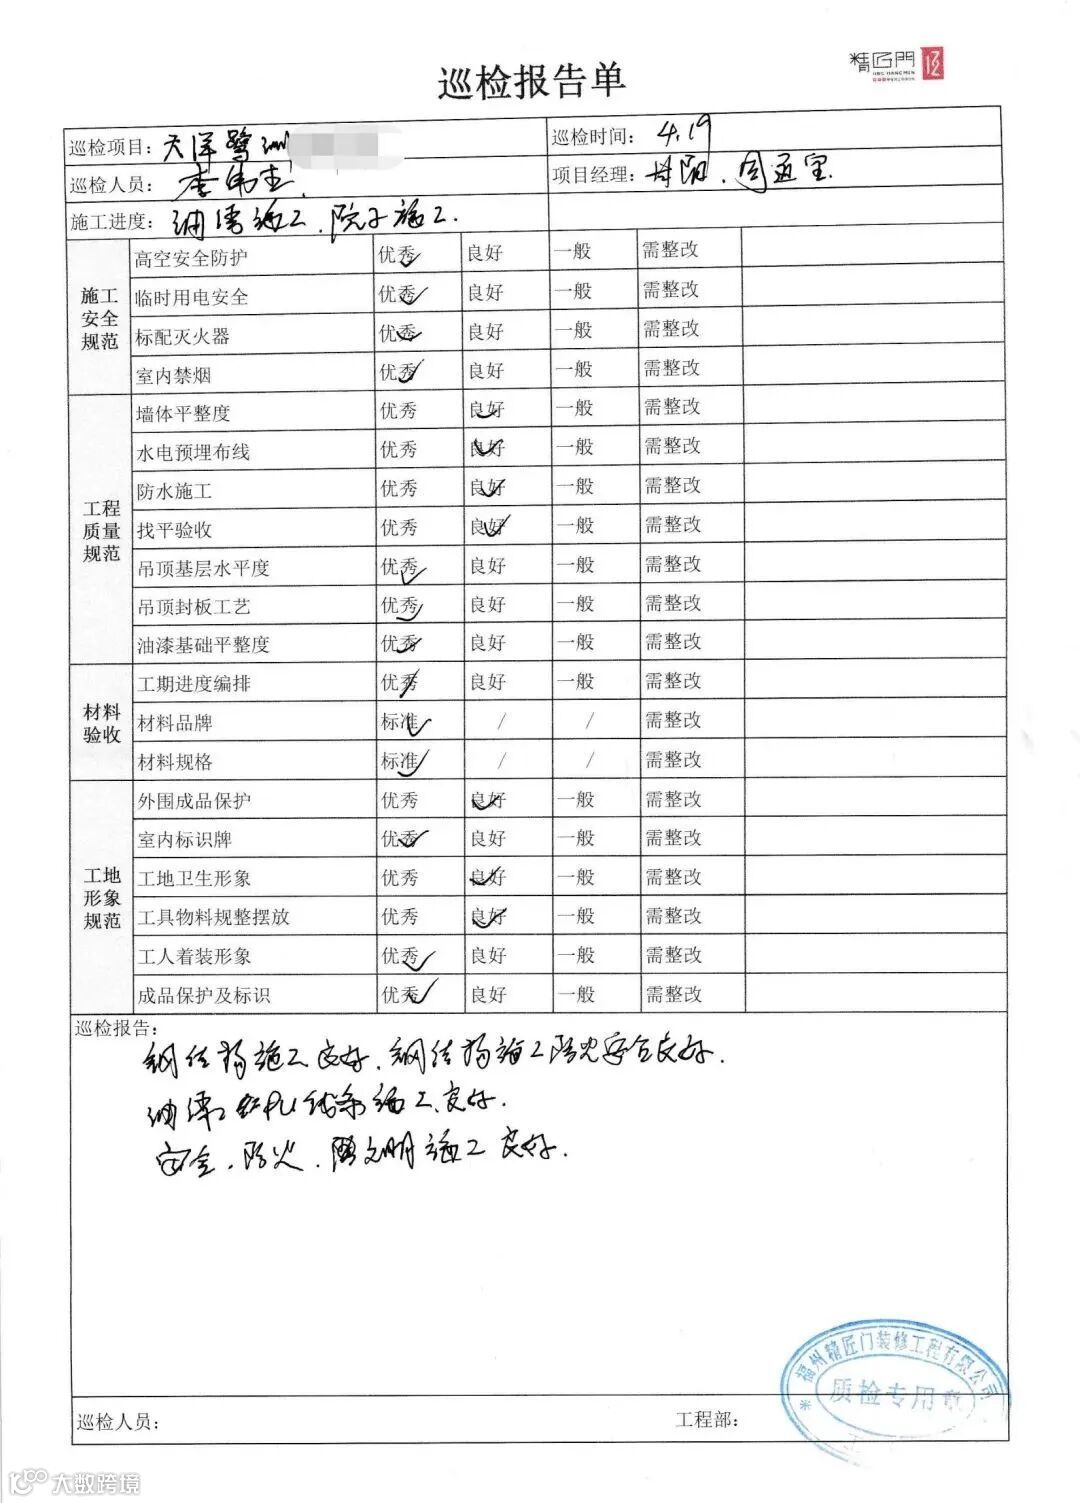 精匠門
巡检报告单
巡检项目: 天洋鹭洲
巡检时间: 4.19
巡检人员: 李伟杰.
项目经理: 林阳、周通宝
施工进度: 油漆施工、院子施工.
施工安全规范
高空安全防护 优秀✓ 良好 一般 需整改
临时用电安全 优秀✓ 良好 一般 需整改
标配灭火器 优秀✓ 良好 一般 需整改
室内禁烟 优秀✓ 良好 一般 需整改
工程质量规范
墙体平整度 优秀 良好✓ 一般 需整改
水电预埋布线 优秀 良好✓ 一般 需整改
防水施工 优秀 良好✓ 一般 需整改
找平验收 优秀 良好✓ 一般 需整改
吊顶基层水平度 优秀✓ 良好 一般 需整改
吊顶封板工艺 优秀✓ 良好 一般 需整改
油漆基础平整度 优秀✓ 良好 一般 需整改
材料验收
工期进度编排 优秀✓ 良好 一般 需整改
材料品牌 标准✓ / / 需整改
材料规格 标准✓ / / 需整改
工地形象规范
外围成品保护 优秀 良好✓ 一般 需整改
室内标识牌 优秀✓ 良好 一般 需整改
工地卫生形象 优秀 良好✓ 一般 需整改
工具物料规整摆放 优秀 良好✓ 一般 需整改
工人着装形象 优秀✓ 良好 一般 需整改
成品保护及标识 优秀✓ 良好 一般 需整改
巡检报告:
钢结构施工良好、钢结构施工防火安全良好.
油漆 线条施工良好.
安全、防火、文明施工良好.
福州精匠门装修工程有限公司
质检专用章
巡检人员:
工程部:
大数跨境